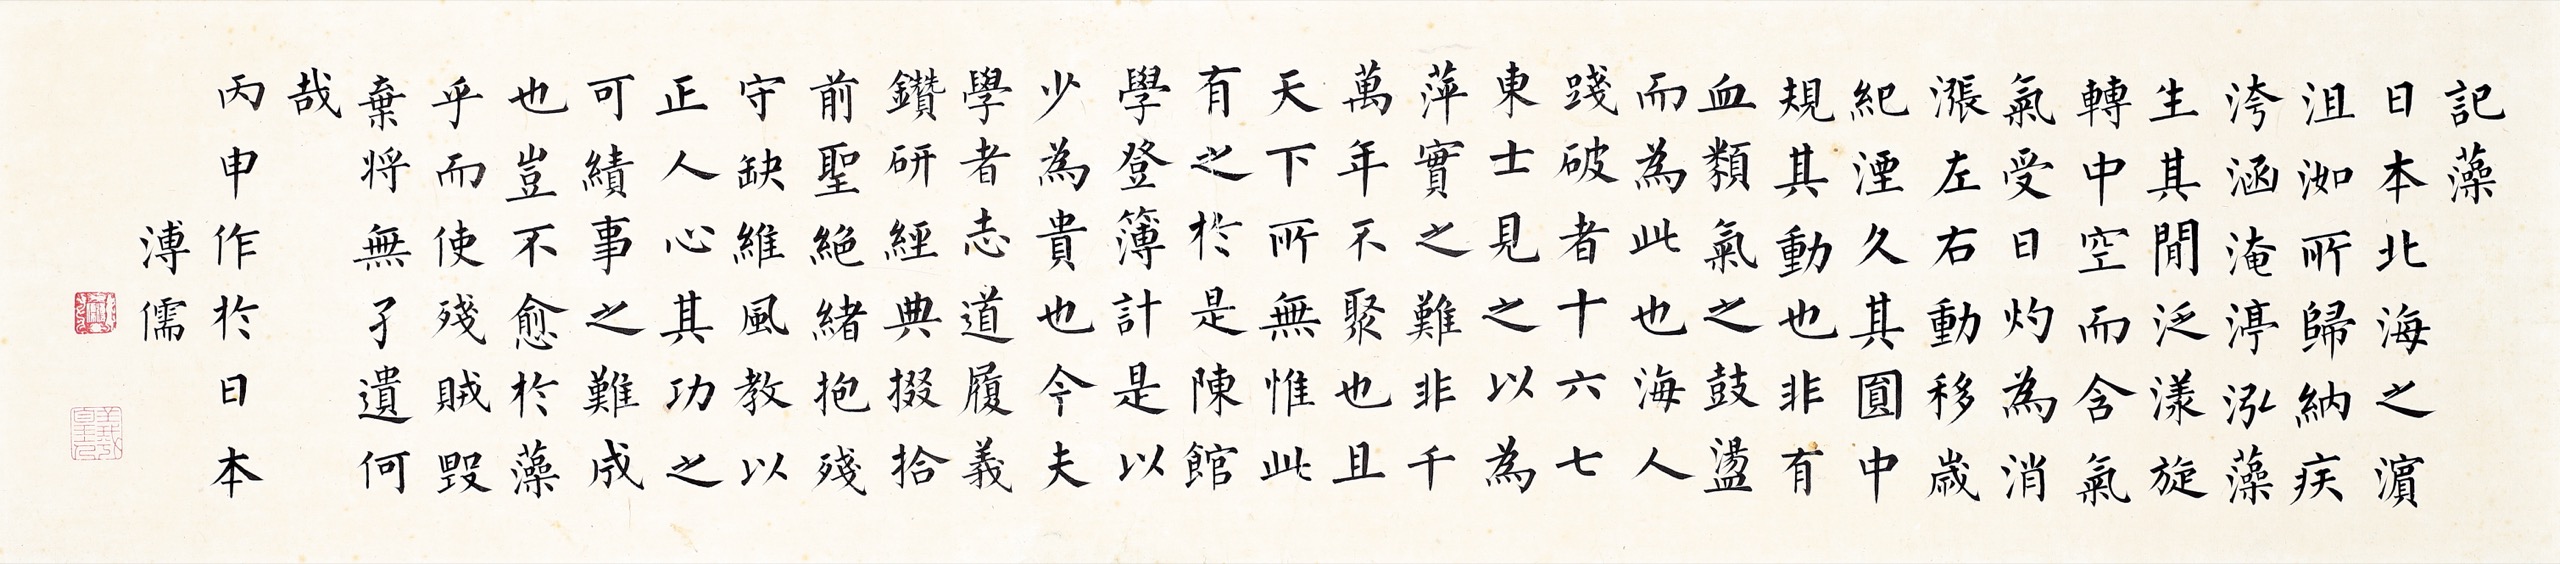 記藻
日本北海之濵
沮洳所歸納疾
洿涵淹渟泓藻
生其間泛漾旋
轉中空而含氣
氣受日灼為消
漲左右動移歳
紀湮久其圓中
規其動也非有
血類氣之鼓盪
而為此也海人
踐破者十六七
東士見之以為
萍實之難非千
萬年不聚也且
天下所無惟此
有之於是陳館
學登簿計是以
少為貴也今夫
學者志道履義
鑽研經典掇拾
前聖絕緒抱殘
守缺維風教以
正人心其功之
可績事之難成
也豈不愈於藻
乎而使殘賊毀
棄將無孑遺何
哉
丙申作於日本
溥儒